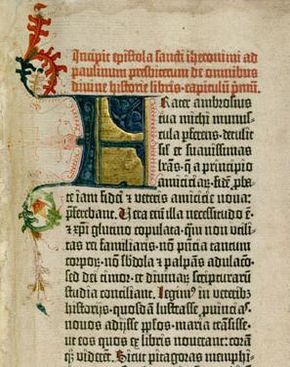 Incipit epistola sancti iheronimi ad
paulinum presbiterum de omnibus
divine historie libris. capitulū pmū.
Frater ambrosius
tua michi munus-
cula pferens. detulit
sil et suavissimas
lrās. q a principio
amiciciaꝝ. fidē pba-
te iam fidei et veteris amicicie nova:
pferebant. Vera enī illa necessitudo ē.
et xpi glutino copulata. qm non utili-
tas rei familiaris. nō pncia tantum
corpoꝝ. nō sbdola et palpās adulaco.
sed dei timor. et divinaꝝ scripturarum
studia conciliant. Legim⁹ in veterib⁹
historijs. quosdā lustrasse puincias.
novos adijsse pplos. maria trāsisse.
ut eos quos ex libris noverant: corā
qꝫ viderēt. Sicut pitagoras memphi-